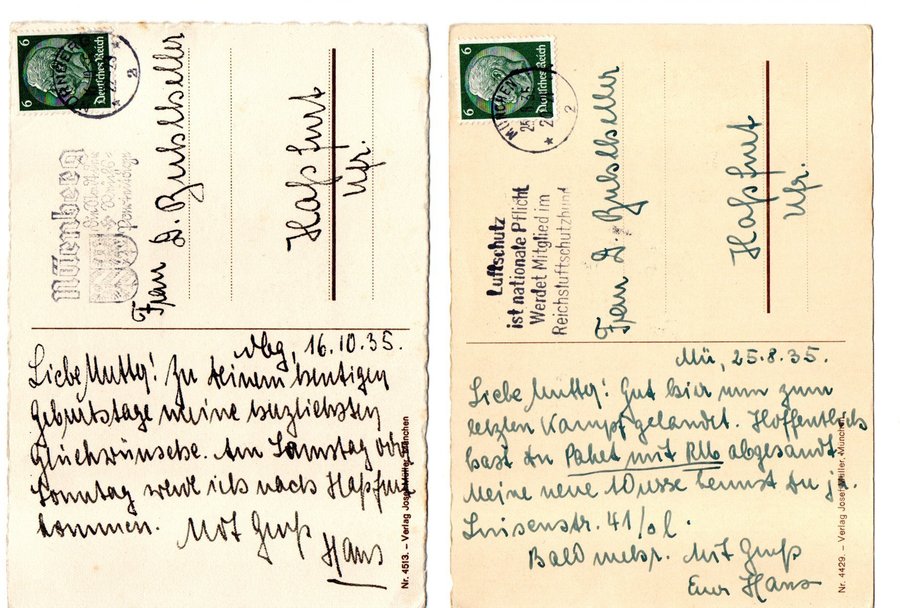 6 6
Deutsches Reich
NÜRNBERG
2
Nürnberg
Frau D. Zubelseller
Haßfurt
Ufr.
Nbg, 16.10.35.
Liebe Mutter! Zu deinem heutigen
Geburtstage meine herzlichsten
Glückwünsche. Am Samstag oder
Sonntag werde ich nach Haßfurt
kommen. Mit Gruß
Hans
Nr. 4513. – Verlag Josef Müller, München
6 6
Deutsches Reich
MÜNCHEN
2
Luftschutz
ist nationale Pflicht
Werdet Mitglied im
Reichsluftschutzbund
Frau D.
Haßfurt
Ufr.
Mü, 25.8.35.
Liebe Mutter! Gut hier nun zum
letzten Kampf gelandet. Hoffentlich
hast du Paket mit abgesandt.
Meine neue kennst du ja.
Luisenstr. 41/0 l.
Bald mehr. Mit Gruß
Euer Hans
Nr. 4429. – Verlag Josef Müller, München